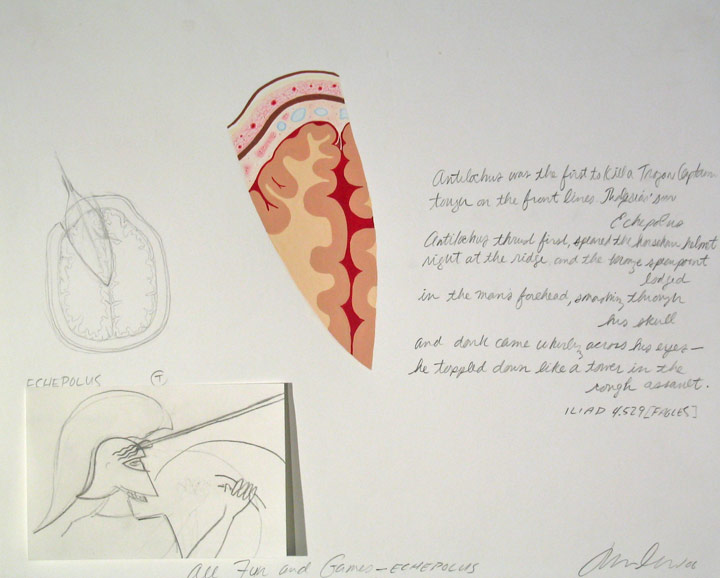 Antilochus was the first to kill a Trojan Captain
tough on the front lines. Thalysias' son
Echepolus
Antilochus thrust first, speared the horsehair helmet
right at the ridge, and the bronze spearpoint
lodged
in the man's forehead, smashing through
his skull
and dark came whirling across his eyes—
he toppled down like a tower in the
rough assault.
ILIAD 4.529 [FAGLES]
ECHEPOLUS T
All Fun and Games—ECHEPOLUS